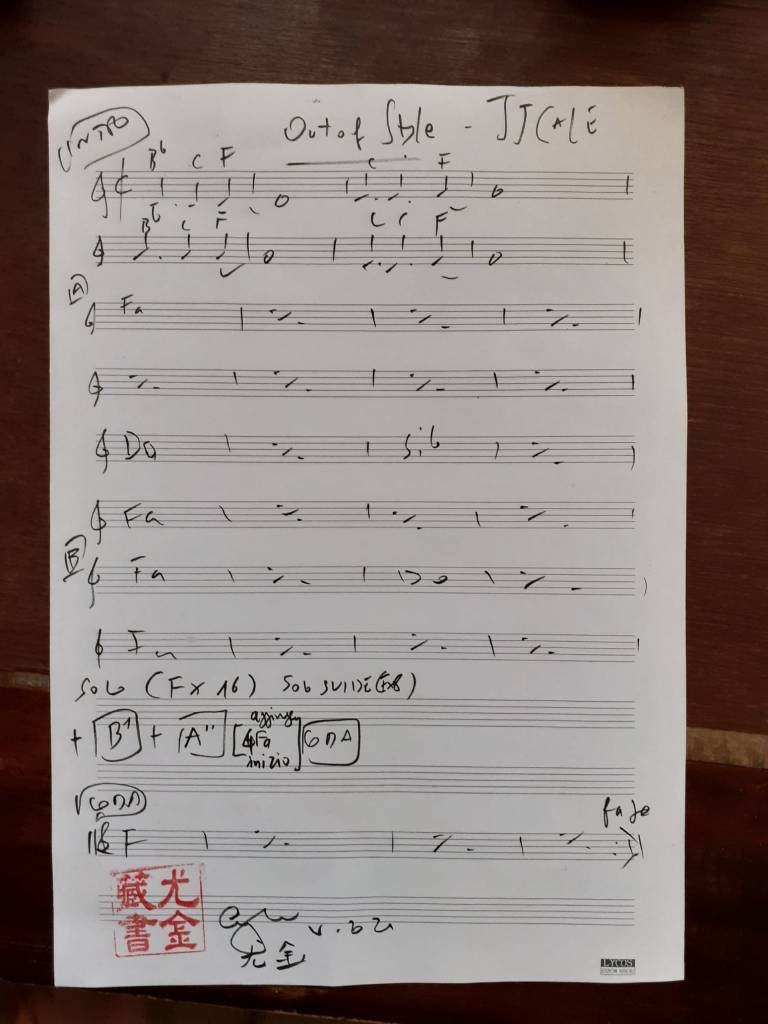 INTRO
Out of Style - JJ CALE
Bb C F C F
Bb C F C C F
A
Fa
Do Sib
Fa
B
Fa Do
Fa
Solo (F x 16) Solo SLIDE (Fx8)
+ B' + A'' [4Fa inizio] CODA
CODA
F
fade
尤金
藏書
尤金
LYCOS